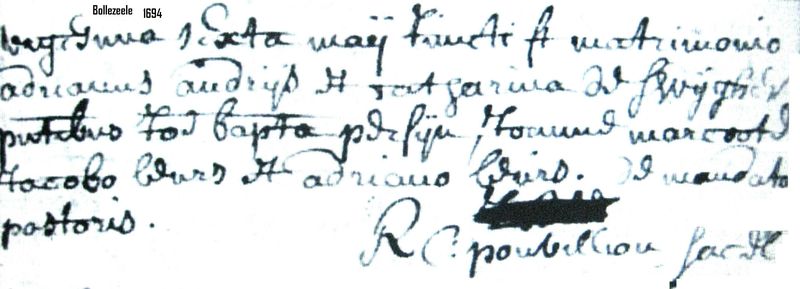 Bollezeele 1694
vigesima sexta maij Iuncti st matrimonio
adrianus andrijs et catharina de swijgher
pntibus Ioe bapta persijn, Ioanne marcoot
Jacobo leurs et adriano leurs. de mandato
pastoris.
R C: pouvillion sac